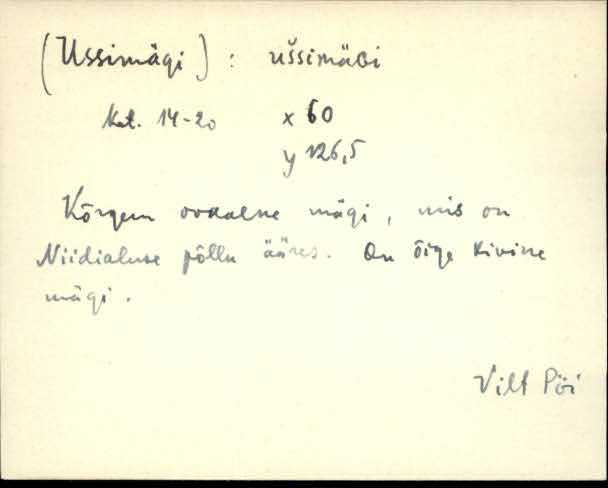 (Ussimägi) : uššimäGi
Kat. 14-20 x 60
y 126,5
Kõrgem ovaalne mägi, mis on
Niidialuse põllu ääres. On õige kivine
mägi.
Vilt Pöi